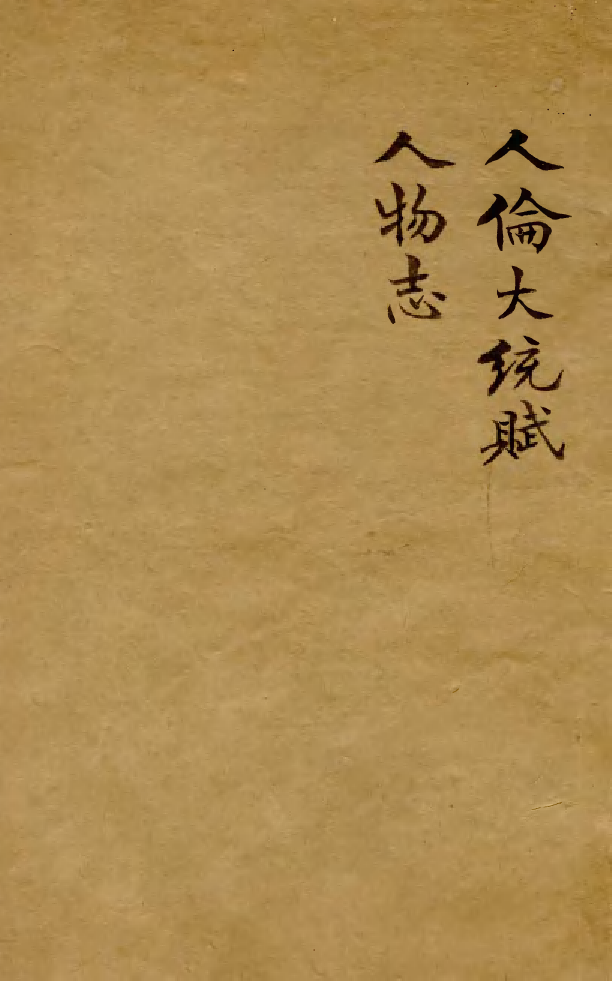 人倫大統賦
人物志